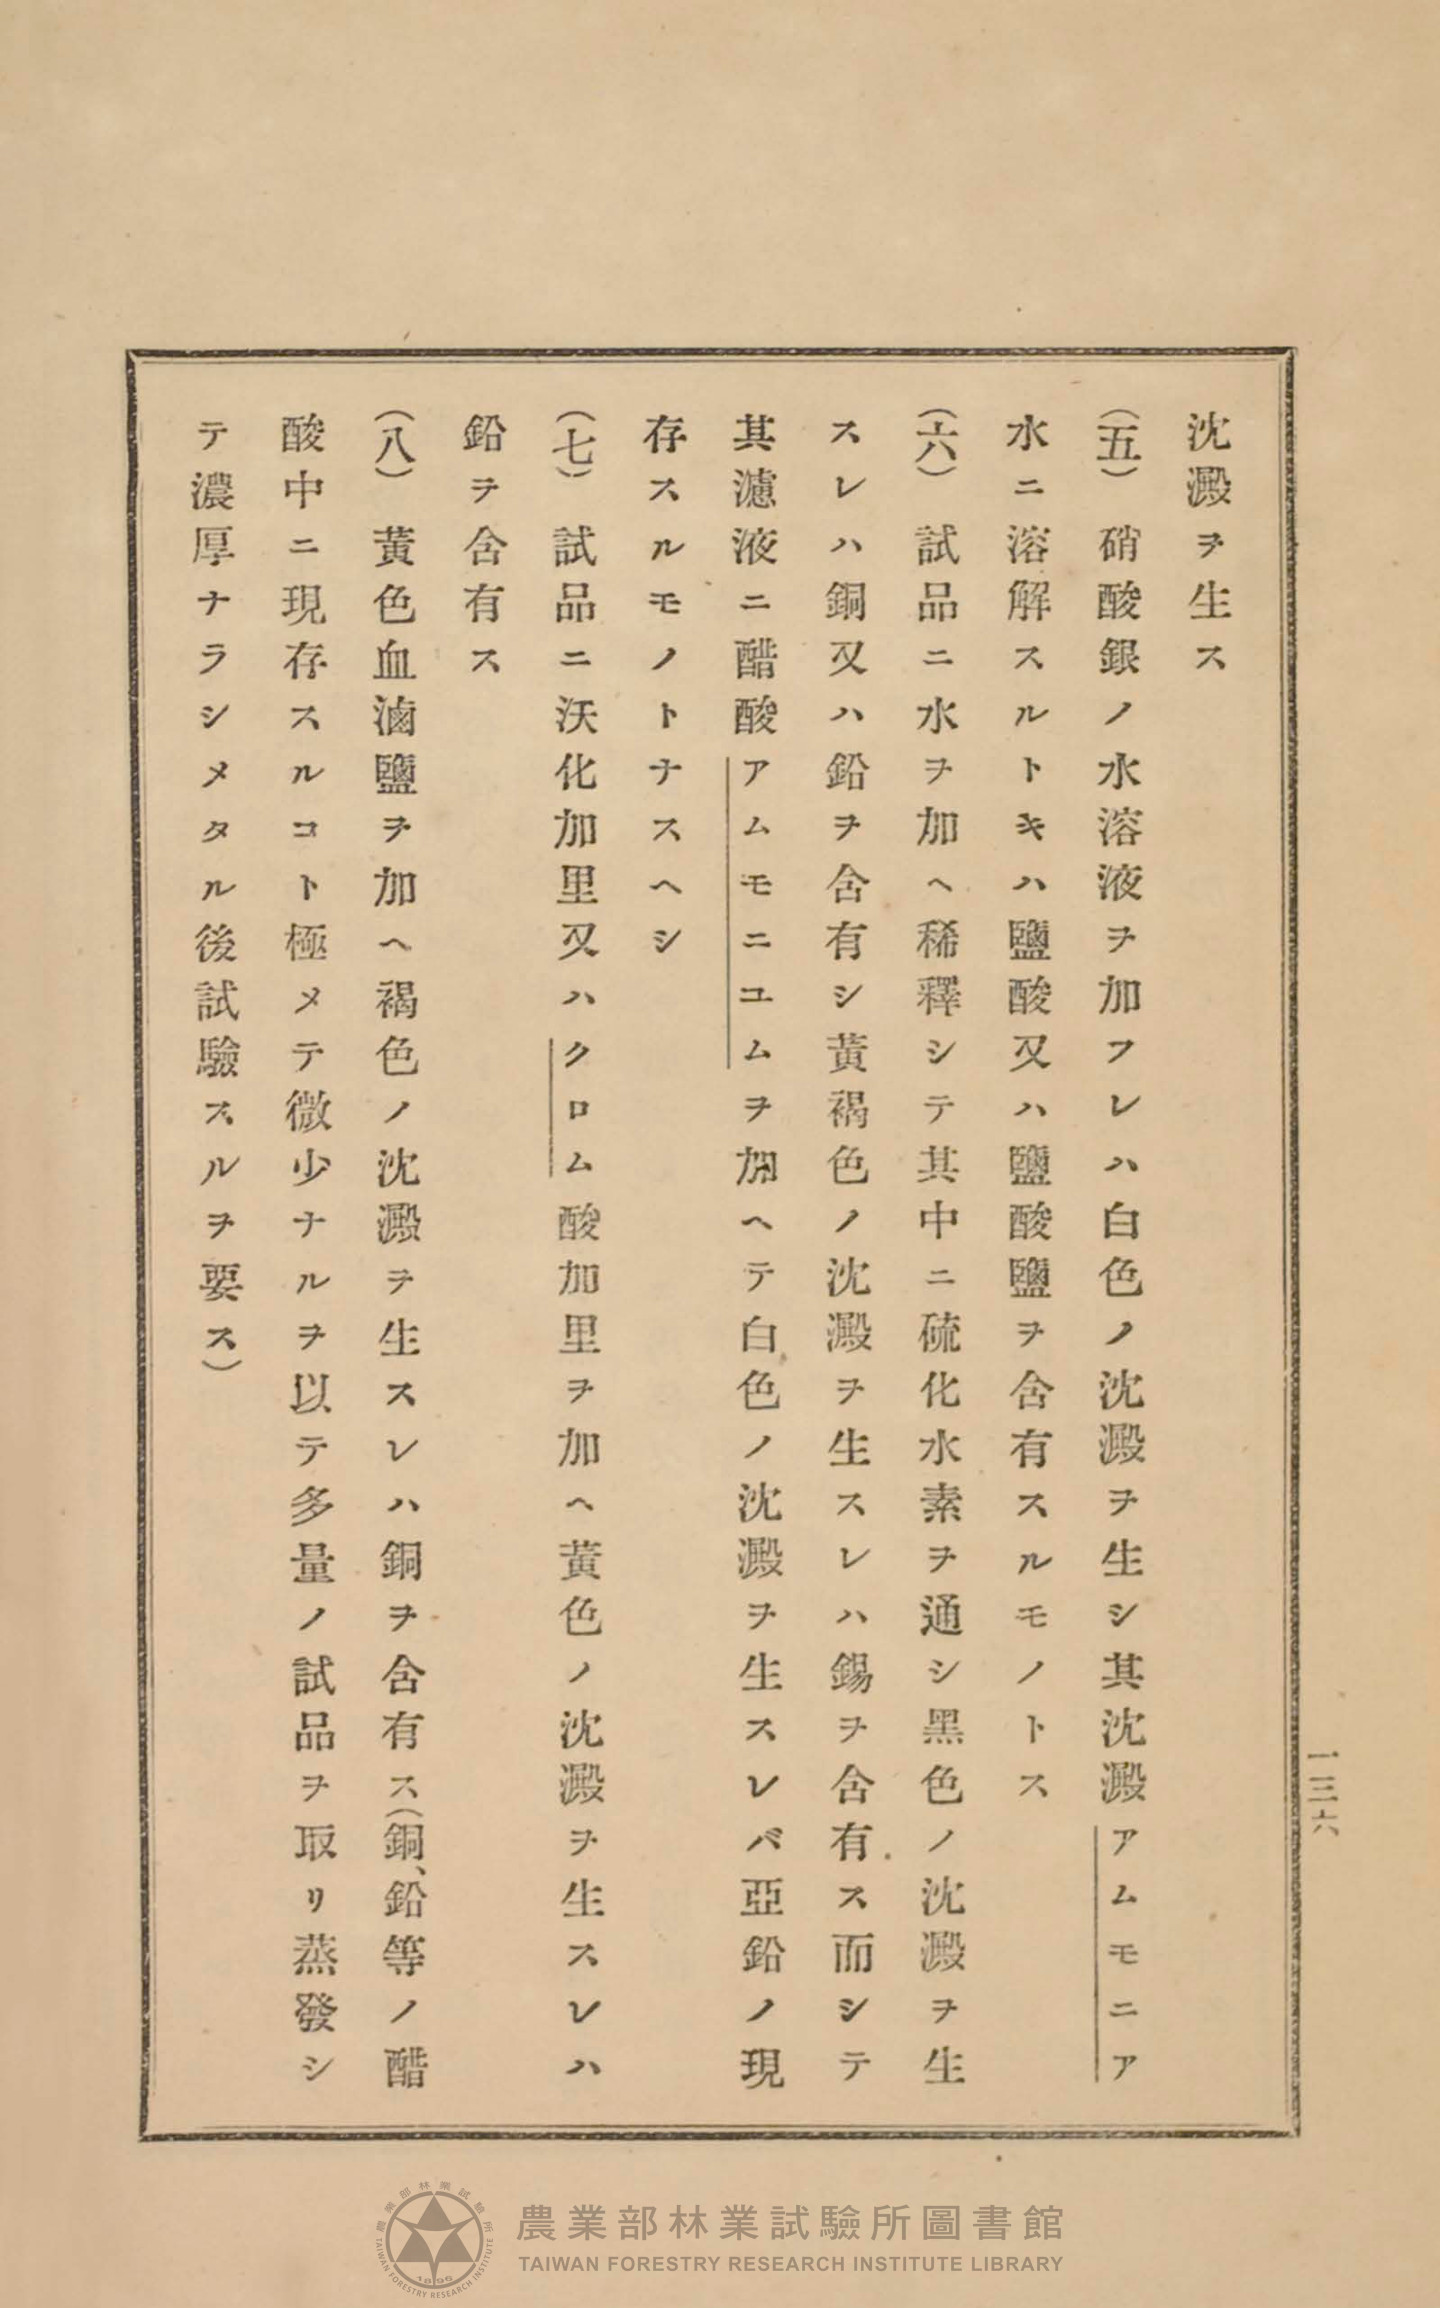 沈澱ヲ生ス
(五)硝酸銀ノ水溶液ヲ加フレハ白色ノ沈澱ヲ生シ其沈澱アムモニア
水ニ溶解スルトキハ鹽酸又ハ鹽酸鹽ヲ含有スルモノトス
(六)試品ニ水ヲ加ヘ稀釋シテ其中ニ硫化水素ヲ通シ黑色ノ沈澱ヲ生
スレハ銅又ハ鉛ヲ含有シ黃褐色ノ沈澱ヲ生スレハ錫ヲ含有ス而シテ
其濾液ニ醋酸アムモニユムヲ加ヘテ白色ノ沈澱ヲ生スレバ亞鉛ノ現
存スルモノトナスヘシ
(七)試品ニ沃化加里又ハクロム酸加里ヲ加ヘ黃色ノ沈澱ヲ生スレハ
鉛ヲ含有ス
(八)黃色血滷鹽ヲ加ヘ褐色ノ沈澱ヲ生スレハ銅ヲ含有ス(銅、鉛等ノ醋
酸中ニ現存スルコト極メテ微少ナルヲ以テ多量ノ試品ヲ取リ蒸發シ
テ濃厚ナラシメタル後試驗スルヲ要ス)
一三六
農業部林業試驗所圖書館
TAIWAN FORESTRY RESEARCH INSTITUTE LIBRARY
農業部林業試驗所
TAIWAN FORESTRY RESEARCH INSTITUTE
1896